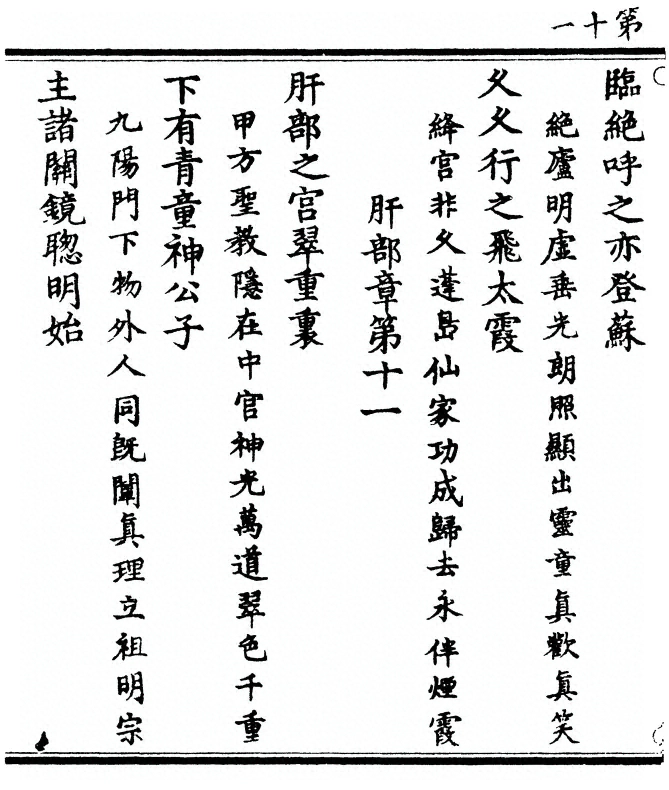 第十一
臨絕呼之亦登蘇
絕廬明虛垂光朗照顯出靈童真歡真笑
久久行之飛太霞
絳宮非久蓬島仙家功成歸去永伴煙霞
肝部章第十一
肝部之宮翠重裏
甲方聖教隱在中宮神光萬道翠色千重
下有青童神公子
九陽門下物外人同旣闡真理立祖明宗
主諸關鏡聰明始